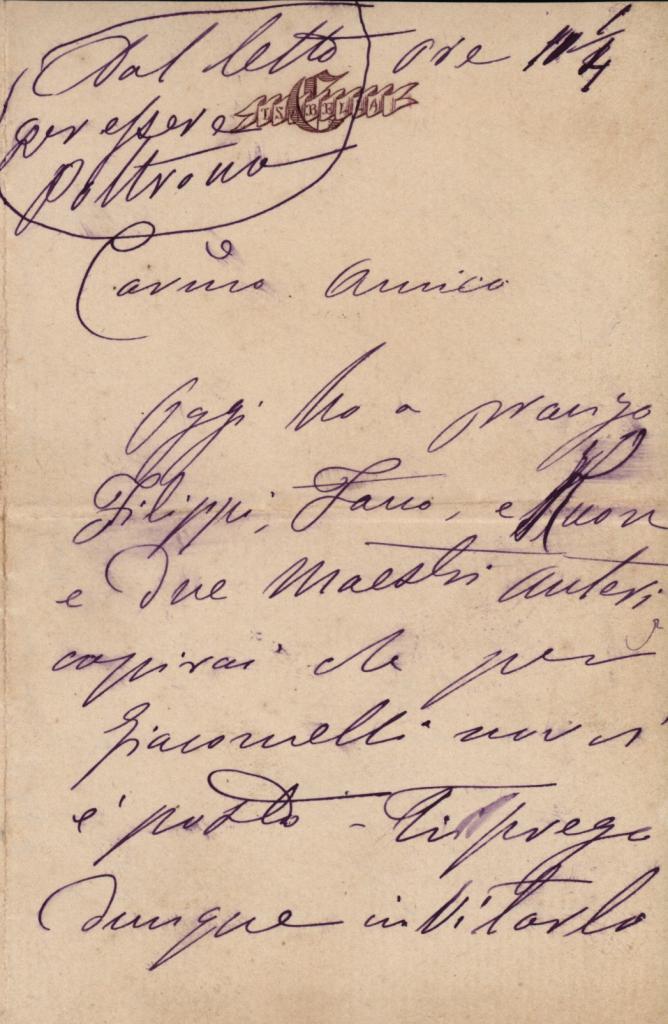 Dal letto ore 10 1/4
ISABELLA
per essere
Poltrona
Carino Amico
Oggi ho a pranzo
Filippi, Fano, e
e due Maestri Auteri
capirai che per
Giacomelli non vi
è posto - Ti prego
dunque invitarlo